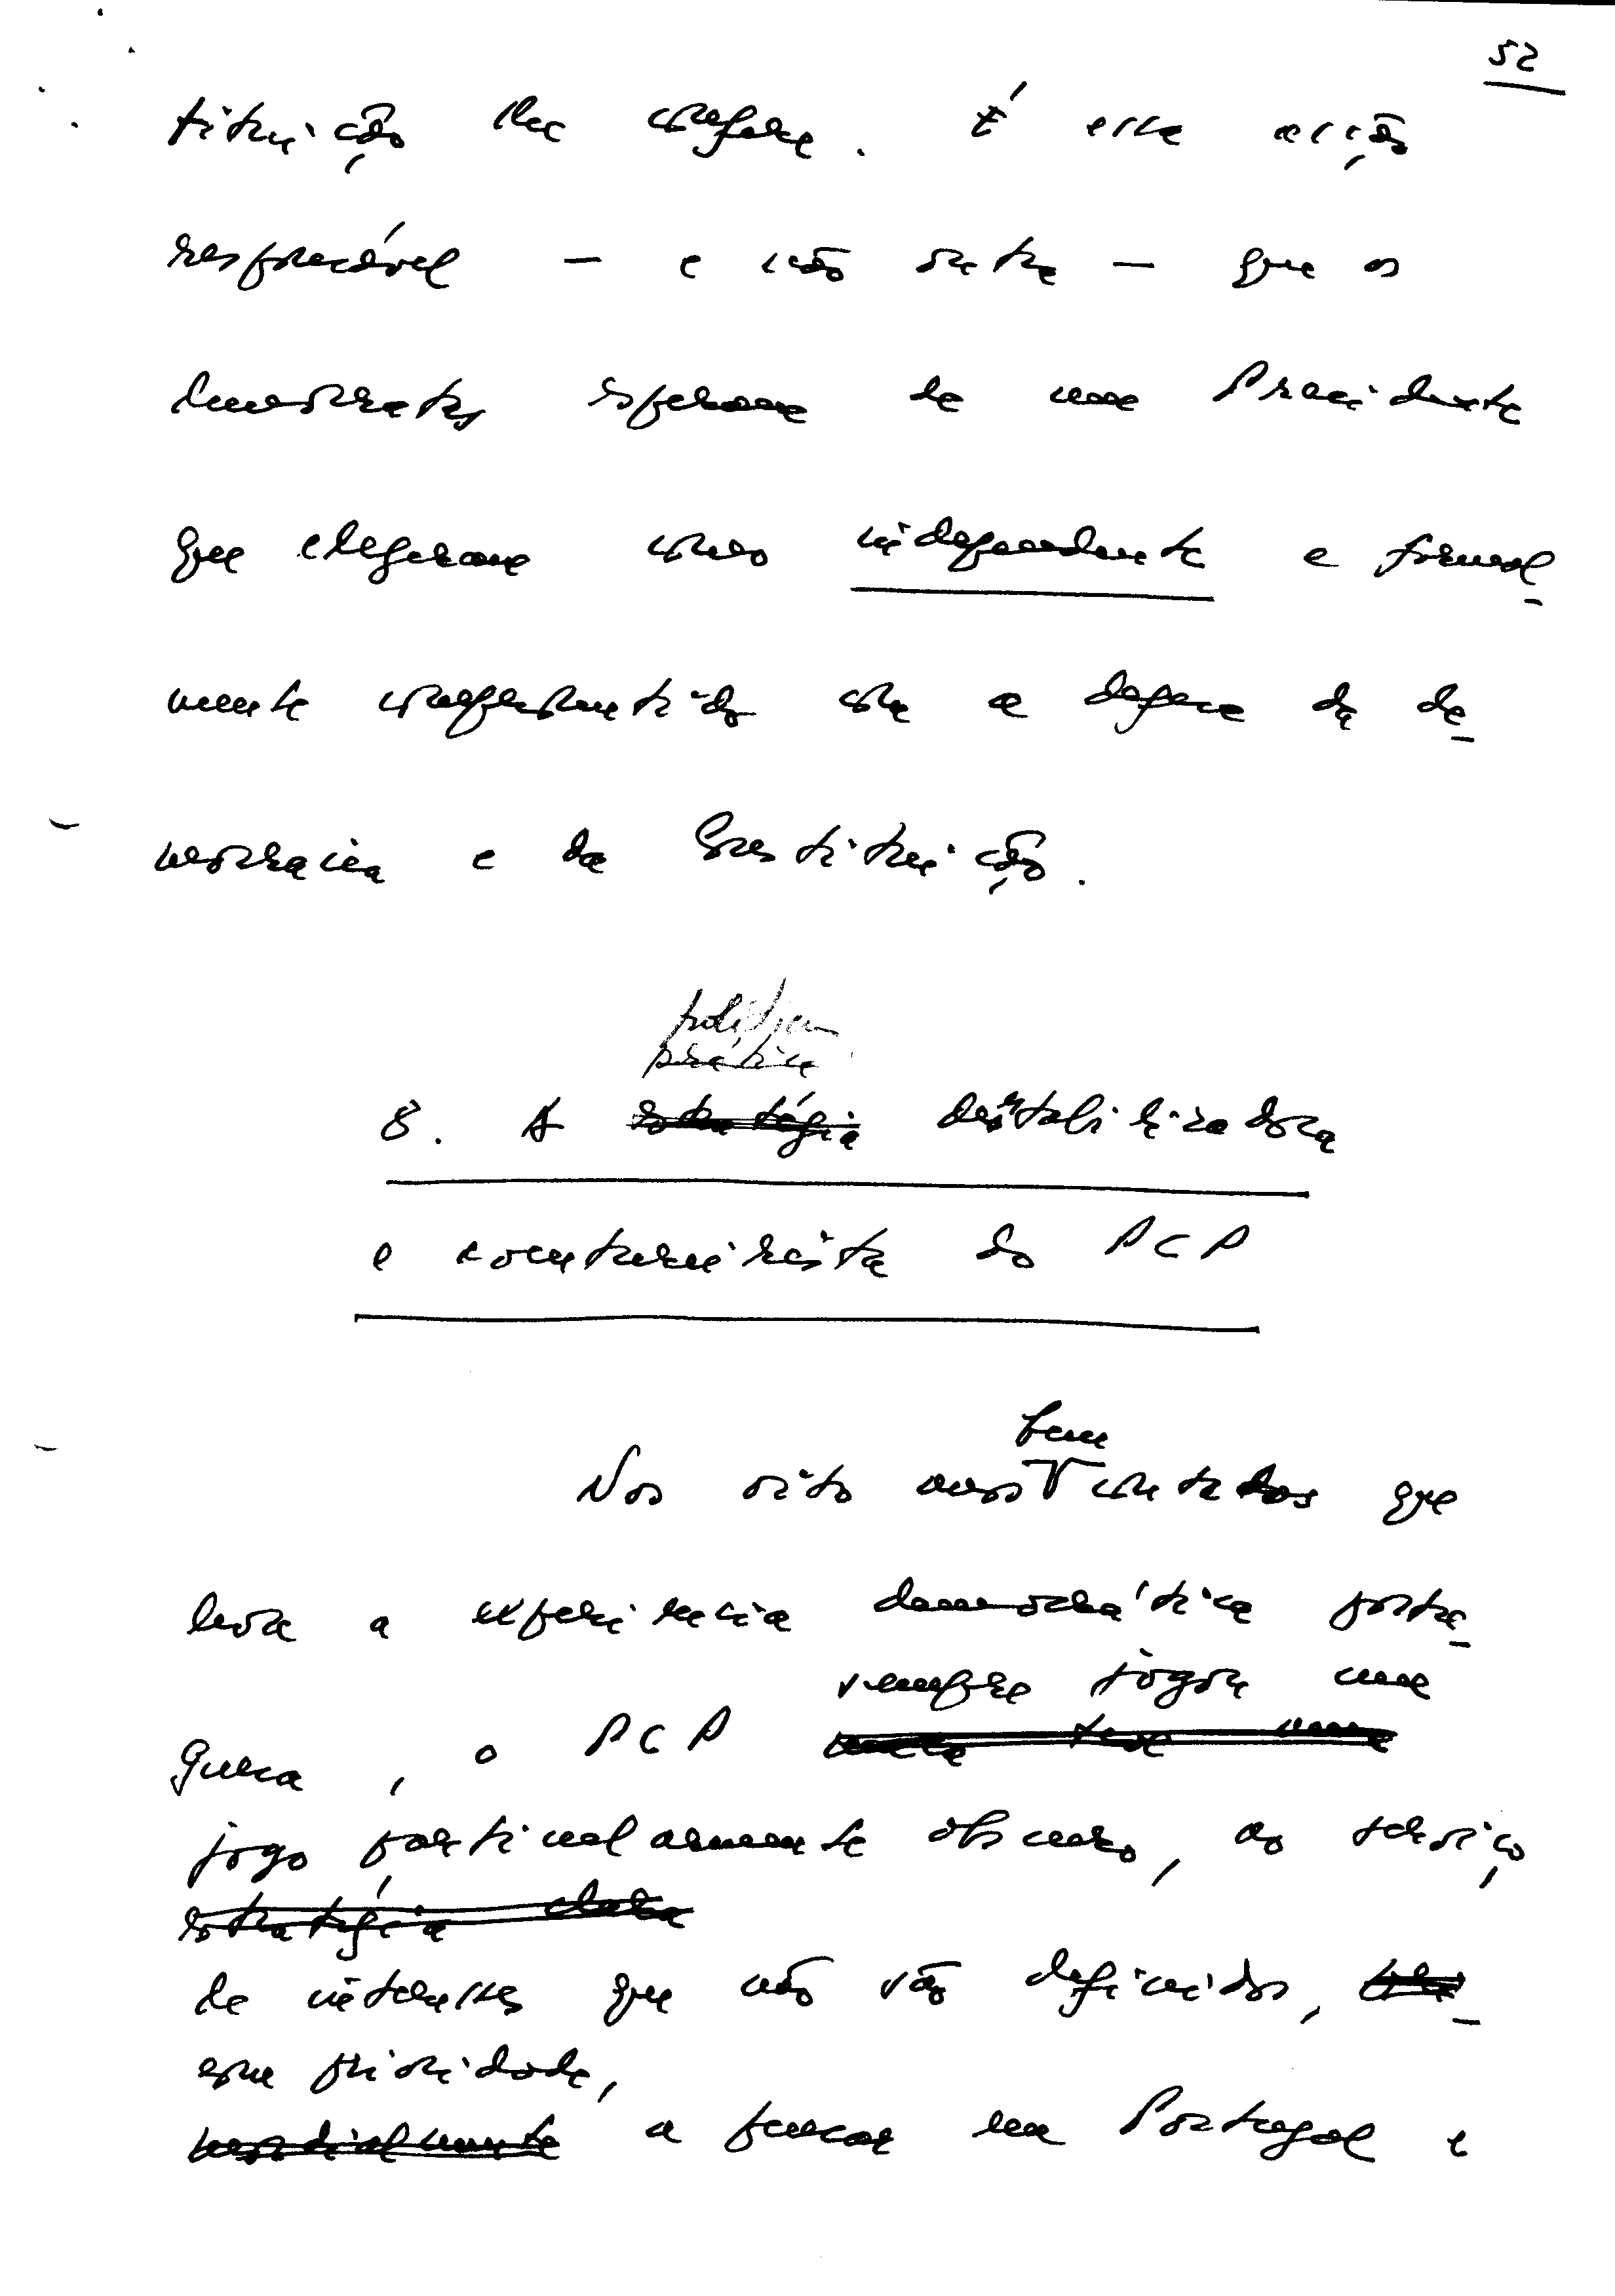 52
tituição lhe confere. É essa acção
responsável — e não outra — que os
democratas esperam de um Presidente
que elegeram como independente e formal-
mente comprometido com a defesa da de-
mocracia e da Constituição.
política
prática
8. A estratégia destabilizadora
e comunista do PCP
bem
Nos oito anos contados que
leva a experiência democrática portu-
sempre jogou um
guesa, o PCP
jogo particularmente obscuro, ao serviço
estratégia clara
de interesses que não são definidos,
com prioridade,
a pensar em Portugal e